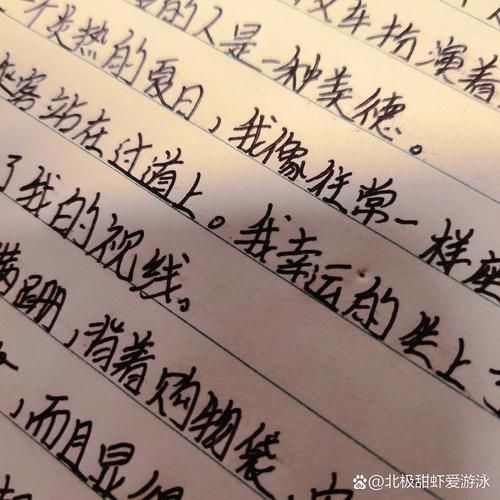 的人是一种美德。
炎热的夏日,我像往常一样座
乘客站在过道上。我幸运的坐上
了我的视线。
蹒跚,背着购物袋
,而且显得
车扮演着
@北极甜虾爱游泳